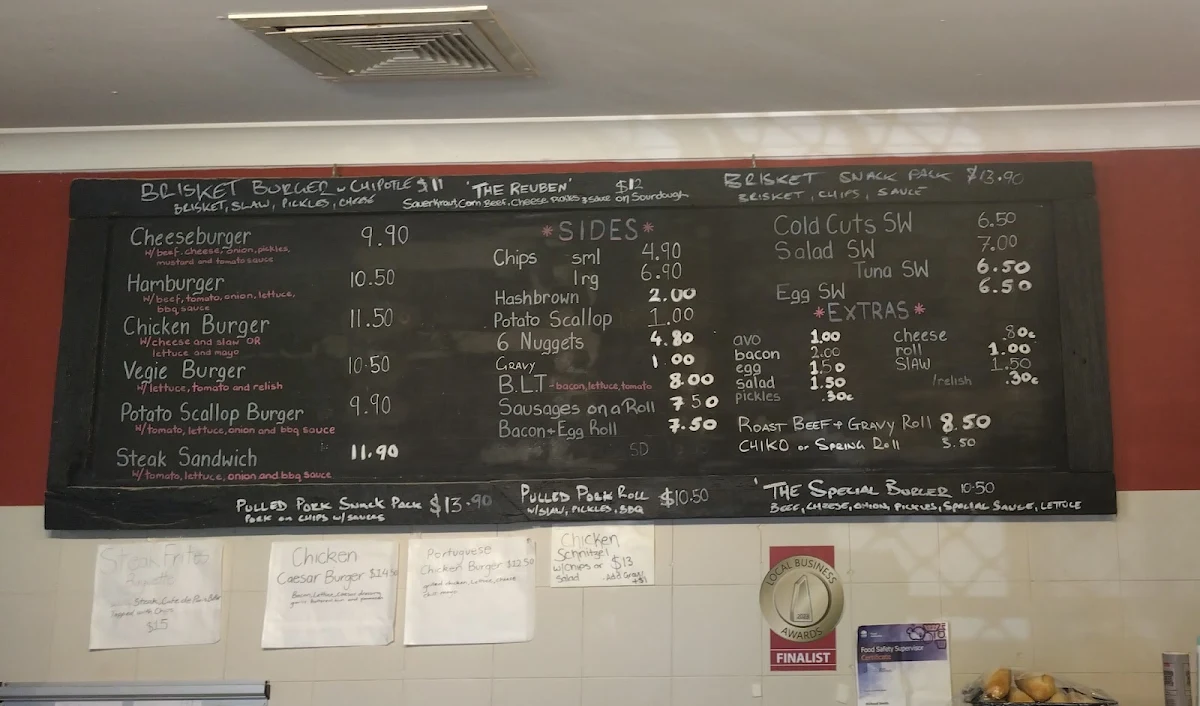 BRISKET BURGER w CHIPOTLE $11
BRISKET, SLAW, PICKLES, CHEESE
'THE REUBEN' $12
Sauerkraut, Corn Beef, Cheese, Pickles & Sauce on Sourdough
BRISKET SNACK PACK $13.90
BRISKET, CHIPS, SAUCE
Cheeseburger 9.90
w/beef, cheese, onion, pickles,
mustard and tomato sauce
Hamburger 10.50
w/beef, tomato, onion, lettuce,
bbq sauce
Chicken Burger 11.50
w/cheese and slaw OR
lettuce and mayo
Vegie Burger 10.50
w/lettuce, tomato and relish
Potato Scallop Burger 9.90
w/tomato, lettuce, onion and bbq sauce
Steak Sandwich 11.90
w/tomato, lettuce, onion and bbq sauce
*SIDES*
Chips sml 4.90
lrg 6.90
Hashbrown 2.00
Potato Scallop 1.00
6 Nuggets 4.80
GRAVY 1.00
B.L.T - bacon, lettuce, tomato 8.00
Sausages on a Roll 7.50
Bacon+Egg Roll 7.50
Cold Cuts SW 6.50
Salad SW 7.00
Tuna SW 6.50
Egg SW 6.50
*EXTRAS*
avo 1.00 cheese .80c
bacon 2.00 roll 1.00
egg 1.50 SLAW 1.50
salad 1.50 /relish .30c
pickles .30c
ROAST BEEF + GRAVY ROLL 8.50
CHIKO or SPRING ROLL 3.50
PULLED PORK SNACK PACK $13.90
PORK ON CHIPS w/ SAUCES
PULLED PORK ROLL $10.50
w/SLAW, PICKLES, BBQ
'THE SPECIAL BURGER 10.50
BEEF, CHEESE, ONION, PICKLES, SPECIAL SAUCE, LETTUCE
Steak Frites
Steak, Cafe de Paris Butter
with Chips
$15
Chicken
Caesar Burger $14.50
Bacon, Lettuce, Caesar dressing,
Portuguese
Chicken Burger $12.50
grilled chicken, lettuce, cheese
Chicken
Schnitzel
w/chips or $13
Salad Add Gravy
+$1
LOCAL BUSINESS
AWARDS
FINALIST
Food Safety Supervisor
Certificate